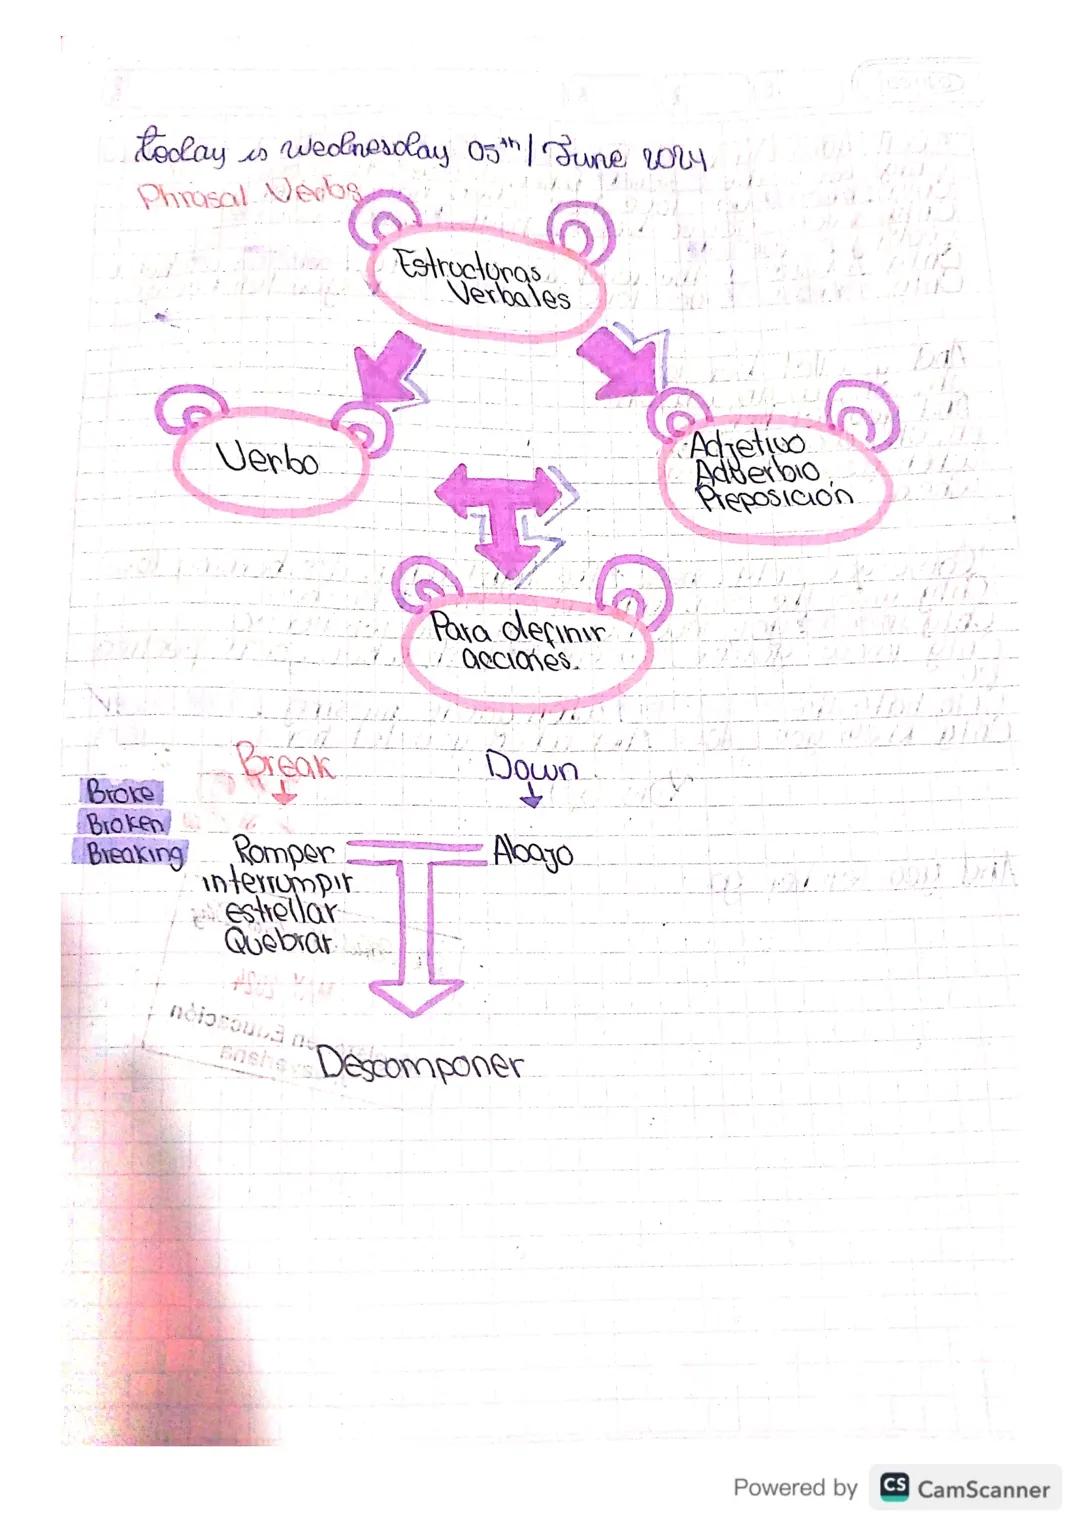 today is Wednesday 05th / June 2024
Phrasal Verbs
Estructuras
Verbales
Verbo
Adjetivo
Adverbio
Preposición
Para definir
acciones.
Break
Down
Broke
Broken
Breaking
Romper
interrumpir
estrellar
Quebrar
Abajo
Descomponer
Powered by CS CamScanner